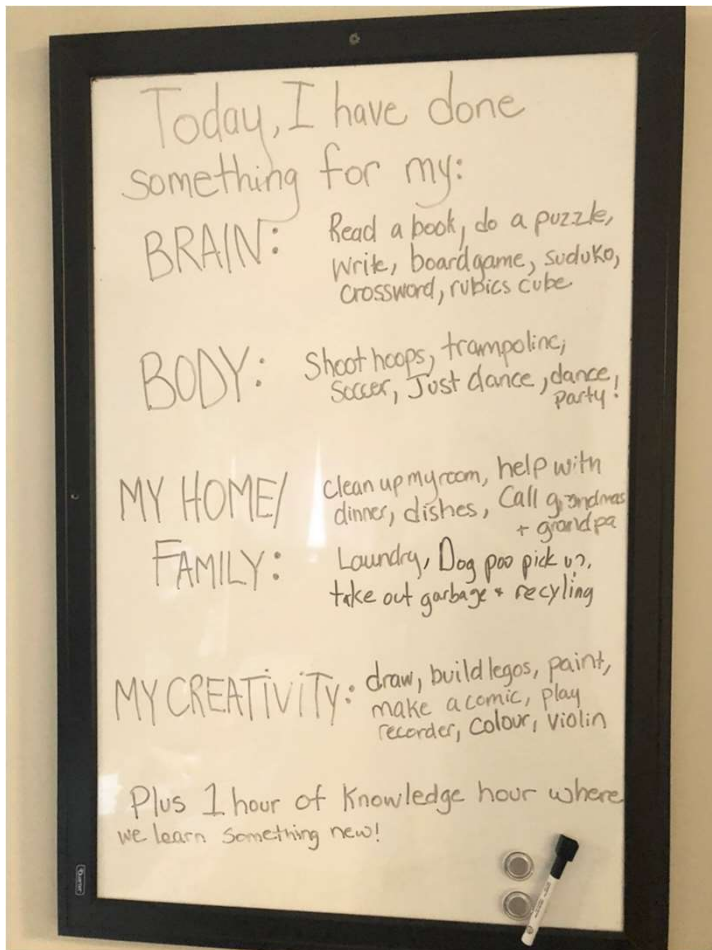 Today, I have done
something for my:
BRAIN: Read a book, do a puzzle,
write, board game, suduko,
crossword, rubics cube
BODY: Shoot hoops, trampoline,
Soccer, Just dance, dance
party!
MY HOME/ clean up my room, help with
dinner, dishes, Call grandmas
+ grandpa
FAMILY: Laundry, Dog poo pick up,
take out garbage + recyling
MY CREATIVITY: draw, build legos, paint,
make a comic, play
recorder, colour, violin
Plus 1 hour of Knowledge hour where
we learn something new!